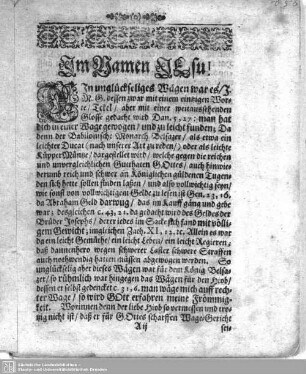 Im Namen JEsu!
EIn unglückseliges Wägen war es / J.
Pr. G. dessen zwar mit einem eintzigen Wort
te / Tekel, aber mit einer weitaussehenden
Glosse gedacht wird Dan. 5, 27: man hat
dich in einer Wage gewogen / und zu leicht funden; Da
denn der Babilonische Monarch Belsazer / als etwa ein
leichter Ducat (nach unserer Art zu reden) oder als leichte
Küpper Müntze / dargestellet wird / welche gegen die reichen
und unvergleichlichen Gnthaten GOttes / auch hinwie-
derumb reich und schwer an Königlichen güldenen Tugen-
den sich hette sollen finden laßen / und also vollwichtig seyn /
wie sonst von vollwichtigem Gelde zu lesen ist Gen. 23, 16.
da Abraham Geld darwug / das im Kauff gäng und gebe
war; desgleichen c. 43, 21. da gedacht wird des Geldes der
Brüder Josephs / deeer iedes im Sacke sich fand mit völli-
gem Gewicht; imgleichen Zach. XI, 12. Allein es war
da ein leicht Gemüthe / ein leicht Leben / ein leicht Regieren /
daß dannenhero wegen schwerer Laster schwere Straffen
auch nothwendig hatten müssen abgewogen werden. So
unglückselig aber dieses Wägen war für dem König Belsa-
zer / so rühmlich war hingegen das Wägen für den Hiob /
dessen er selbst gedencket c. 31, 6. man wäge mich auff rech-
ter Wage / so wird GOtt erfahren meine Frömmig-
keit. Worinnen denn der liebe Hiob so vermessen und tro-
tzig nicht ist / daß er für GOttes scharffen Wage-Gericht
A ij
sei-